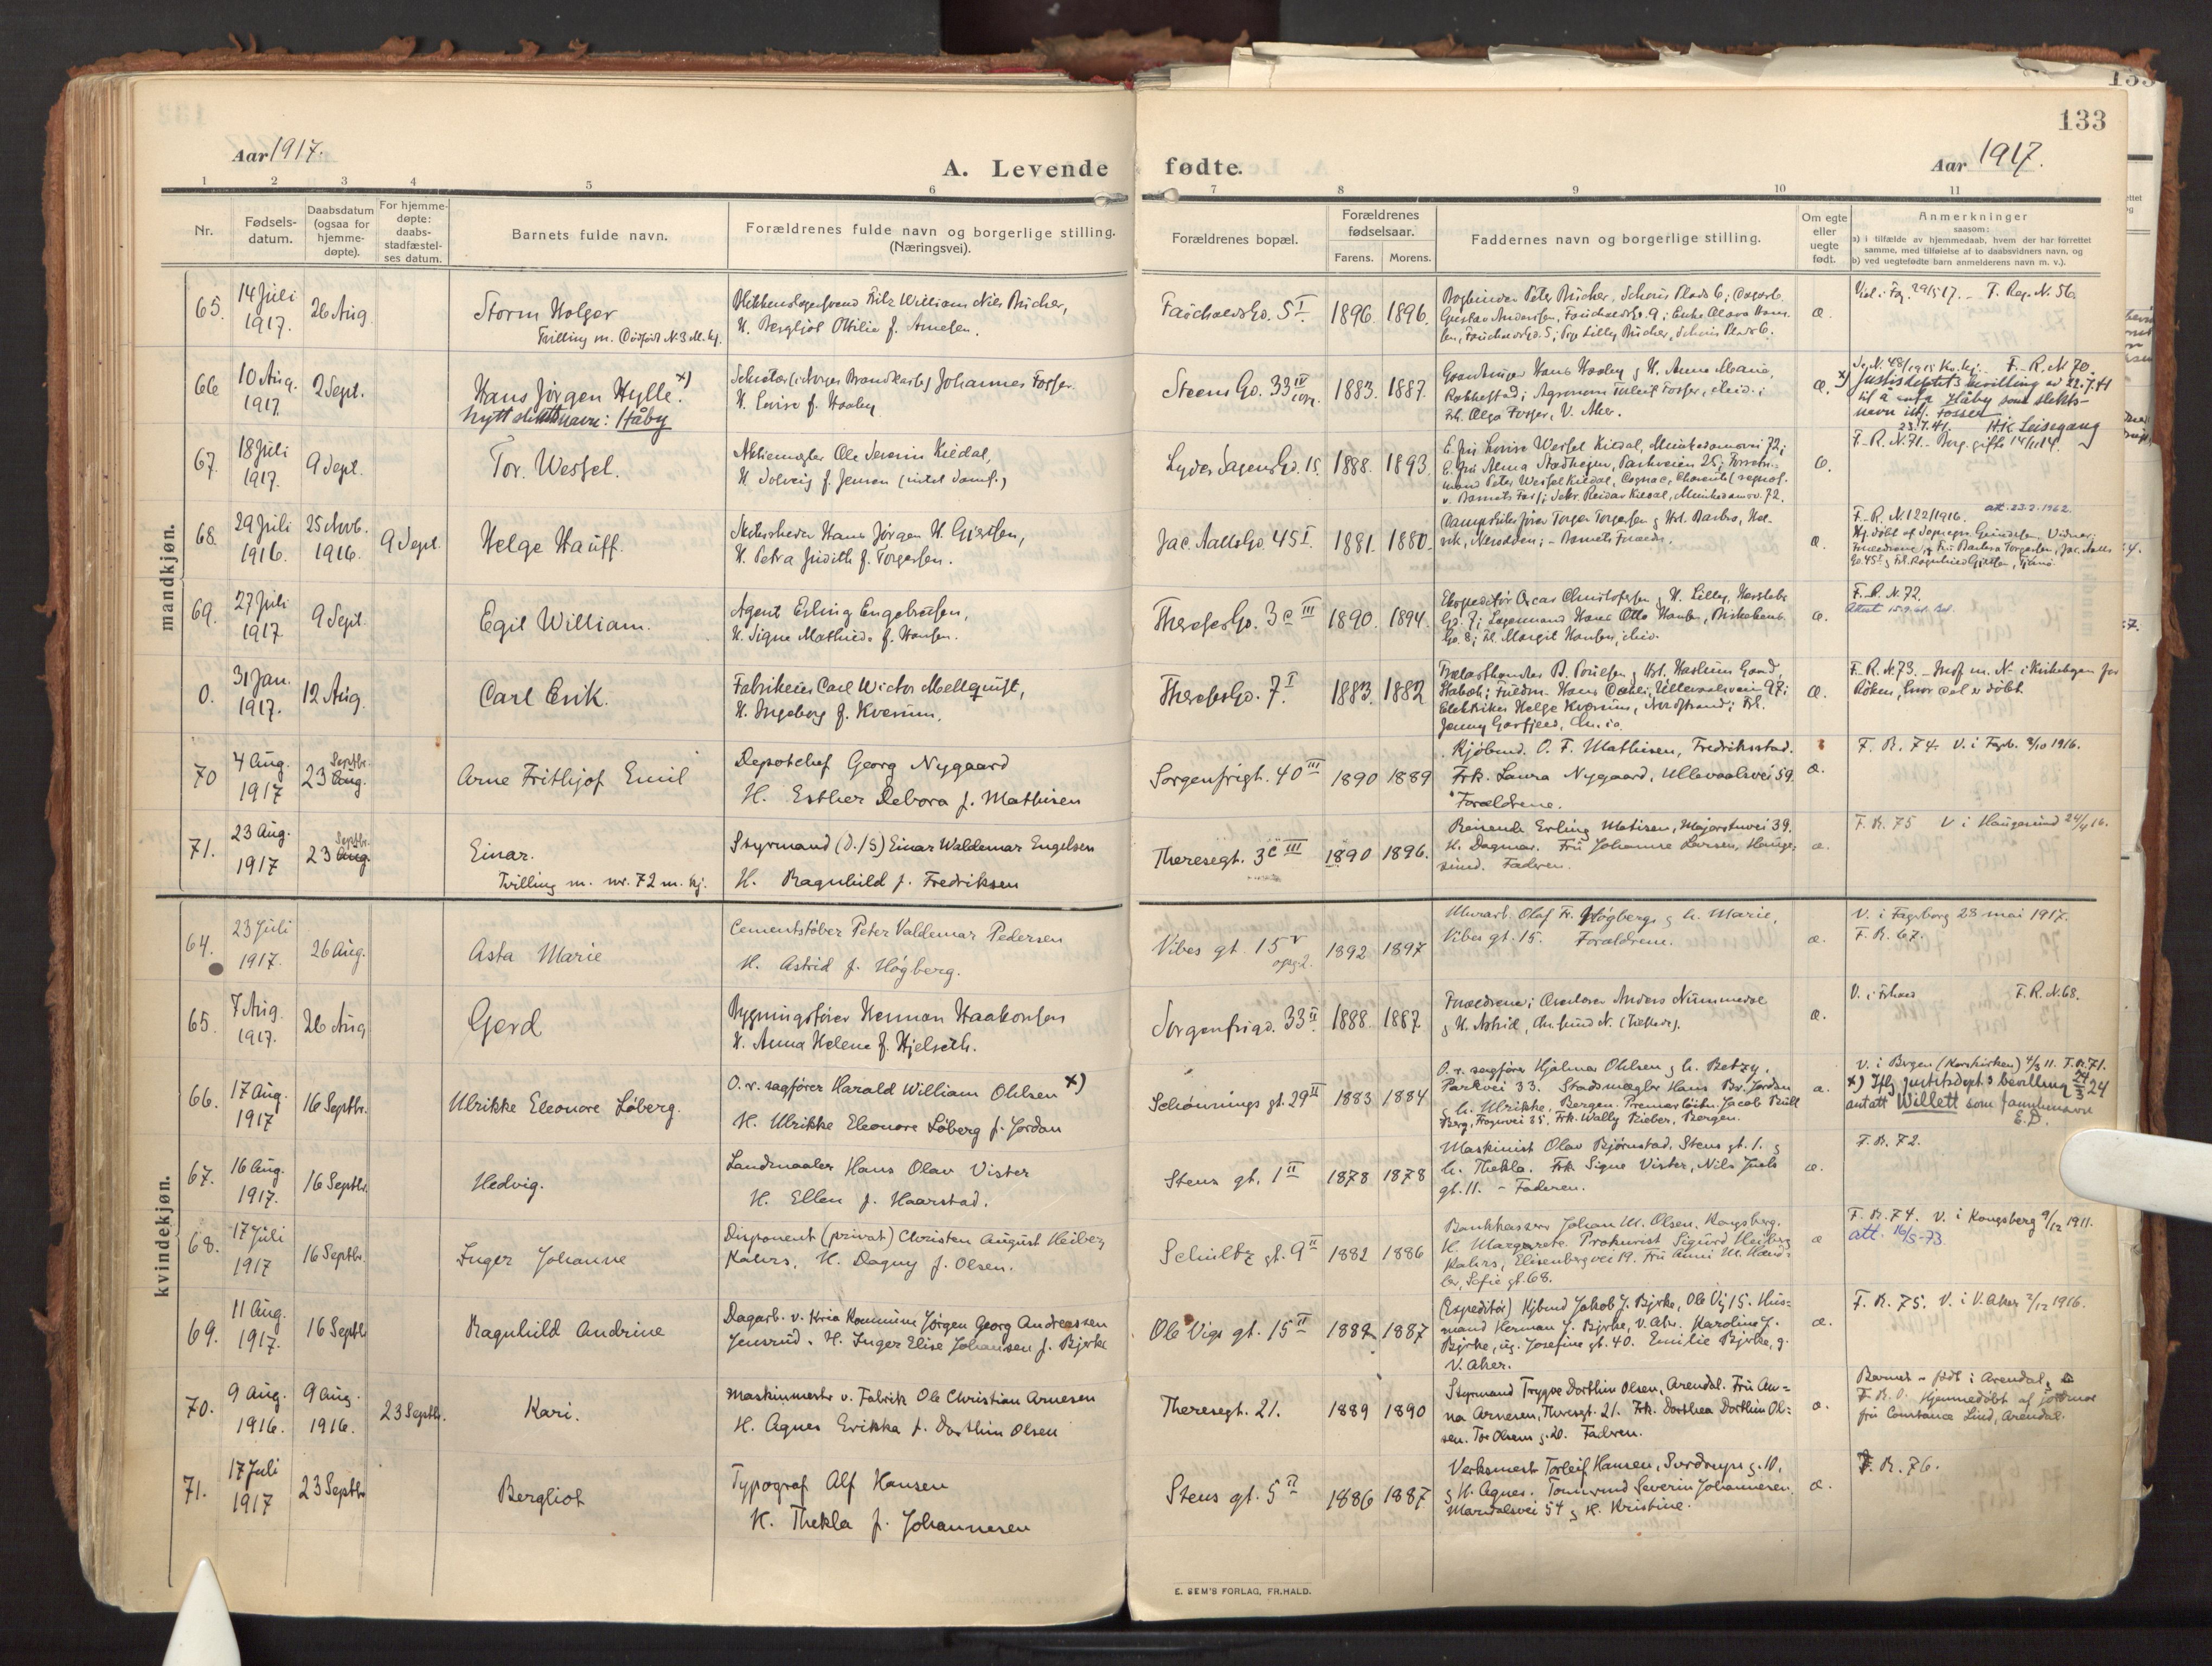 133
Aar 1917.
A. Levende fødte.
Aar 1917.
1 2 3 4 5 6 7 8 9 10 11
Nr.
Fødsels-
datum.
Daabsdatum
(ogsaa for
hjemme-
døpte).
For hjemme-
døpte:
daabs-
stadfæstel-
ses datum.
Barnets fulde navn.
Forældrenes fulde navn og borgerlige stilling.
(Næringsvei).
Forældrenes bopæl.
Forældrenes
fødselsaar.
Farens. Morens.
Faddernes navn og borgerlige stilling.
Om egte
eller
uegte
født.
Anmerkninger
saasom:
a) i tilfælde av hjemmedaab, hvem der har forrettet
samme, med tilføielse af to daabsvidners navn, og
b) ved uegtefødte barn anmelderens navn m. v.).
mandkjøn.
65. 14 Juli 1917. 26 Aug.
Storm Holger
Tvilling m. Dødfødt N. 3 M. kj.
Fritz William Nils Bücher,
H. Bergljot Ottilie f. Arnesen.
5 I 1896. 1896.
Bogbinder Peter Bücher, Schous Plads 6;
æ.
F. Reg. N. 56.
66 10 Aug. 1917. 2 Sept.
Hans Jørgen Hylle. x)
Nytt slektsnavn: Håby
Johannes Fosser
H. Lovise f. Haaby
Steens Gd. 33 IV 1883. 1887.
Hans Haaby & H. Anna Maria,
Frk. Olga Fosser, V. Aker.
æ.
F. R. N. 70.
x) Justisdeptets bevilling av 22.7.41
til å anta Håby som slekts-
navn istf. Fosser
23.7.41. H.K. Leisegang
67. 18 Juli 1917. 9 Sept.
Tor. Wessel.
Aktiemægler Ole Severin Kildal,
H. Solveig f. Jensen
Lyder Sagens Gd. 15. 1888. 1893.
E. fru Lovise Wessel Kildal, Munkedamsvei 72;
Peter Wessel Kildal, Cognac,
Reidar Kildal, Munkedamsv. 72.
F. R. N. 71. Borg. gift 14/11 14.
68. 29 Juli 1916. 25 Novb. 1916. 9 Sept.
Helge Hauff.
Hans Jørgen H. Gjertsen,
H. Petra Judith f. Torgersen.
Jac. Aalls Gd. 45 I. 1881. 1880.
Torger Torgersen
æ.
F. R. N. 122/1916. att. 23.2.1962.
69. 27 Juli 1917. 9 Sept.
Egil William.
Agent Erling Engebretsen,
H. Signe Mathilde f. Hansen.
Theresesgd. 3 c III 1890. 1894.
Ekspeditør Oscar Christofersen & H. Lilly,
Lagermand Hans Otto Hansen,
Frk. Margit Hansen, ibid.
æ.
F. R. N. 72.
0. 31 Jan. 1917. 12 Aug.
Carl Erik.
Fabrikeier Carl Victor Mellquist,
H. Ingeborg f. Kværum.
Theresesgd. 7 I 1883. 1882
Elektriker Helge Kværum, Nordstrand; Frk.
æ.
F. R. N. 73. i Kirkebogen for
Röken, hvor det er döbt.
70 4 Aug. 1917 23 Septbr. Aug.
Arne Frithjof Emil
Depotchef Georg Nygaard
H. Esther Debora f. Mathisen
Sorgenfrigt. 40 III 1890 1889
Kjöbmd. O. F. Mathisen, Fredriksstad.
Frk. Laura Nygaard, Ullevaalsvei 59.
Forældrene.
æ.
F. R. 74. V. i Fagb. 3/10 1916.
71. 23 Aug. 1917 23 Septbr. Aug.
Einar.
Tvilling m. nr. 72 m. kj.
Styrmand (D./S) Einar Waldemar Engelsen
H. Ragnhild f. Fredriksen
Theresegt. 3 c III 1890 1896.
Reisende Erling Matisen, Majorstuvei 39.
H. Dagmar. Fru Johanne Larsen, Hauge-
sund. Faderen.
æ.
F. R. 75 V. i Haugesund 24/4 16.
kvindekjøn.
64. 23 Juli 1917. 26 Aug.
Asta Marie
Cementstöber Peter Valdemar Pedersen
H. Astrid f. Högberg.
Vibes gt. 15 V opg. 2. 1892 1897
Murarb. Olaf Fr. Högberg & h. Marie,
Vibes gt. 15. Forældrene.
æ.
V. i Fagerborg 28 mai 1917.
F. R. 67.
65. 7 Aug. 1917. 26 Aug
Gerd
Bygningsfører Herman Haakonsen
H. Anna Helene f. Hjelseth.
Sorgenfrigd. 33 II 1888. 1887.
Forældrene; Anders Nummedal
& H. Astrid,
æ.
F. R. N. 68.
66. 17 Aug. 1917 16 Septbr.
Ulrikke Eleonore Löberg.
O. r. sagförer Harald William Ohlsen x)
H. Ulrikke Eleonore Löberg f. Jordan
Schönnings gt. 29 II 1883 1884
O. r. sagförer Hjalmar Ohlsen & h. Betzy.
Parkvei 33. Stadsmægler Hans Jordan
& h. Ulrikke, Bergen. Premierlöitn. Jacob Bull
Berg, Frognervei 35. Frk. Wally Rieber, Bergen.
æ.
V. i Bergen (Korskirken) 4/3 11. F. R. 71.
x) Iflg. justitsdept's bevilling 24/3 24
antatt Willett som familienavn
E.D.
67. 16 Aug. 1917. 16 Septbr.
Hedvig.
Landmaaler Hans Olav Vister
H. Ellen f. Haarstad.
Stens gt. 1 II 1878 1878
Maskinist Olav Bjørnstad, Stens gt. 1. &
h. Thekla. Frk. Signe Vister, Nils Juels
gt. 11. – Faderen.
æ.
F. R. 72.
68. 17 Juli 1917 16 Septbr.
Inger Johanne
Disponent (privat) Christen August Heiberg
Kahrs, H. Dagny f. Olsen.
Schultz gt. 9 II 1882 1886
Bankkasserer Johan M. Olsen, Kongsberg.
H. Margarete. Prokurist Sigurd Heiberg
Kahrs, Elisenbergvei 19. Fru Anni M.
Sofie gt. 68.
æ
F. R. 74. V. i Kongsberg 9/12 1911.
att. 16/5-73.
69. 11 Aug. 1917. 16 Septb
Ragnhild Andrine
Dagarb. v. Kria Kommune Jörgen Georg Andreassen
Jensrud. H. Inger Elise Johansen f. Bjerke
Ole Vigs gt. 15 II 1882 1887
(Expeditör) Kjbmd Jakob J. Bjerke, Ole Vig 15. Hus-
mand Herman J. Bjerke, V. Aker. Karoline J.
Bjerke, ug. Josefine gt. 40. Emilie Bjerke, g.
V. Aker.
æ.
F. R. 75. V. i V. Aker 2/12 1916.
70. 9 Aug. 1916. 9 Aug. 1916. 23 Septbr.
Kari.
Maskinmestr v. Fabrik Ole Christian Arnesen
H. Agnes Erikka f. Dorthin Olsen
Theresegt. 21. 1889 1890
Styrmand Trygve Dorthin Olsen, Arendal. Fru An-
na Arnesen, Theresgt. 21. Frk. Dorthea Dorthin Ol-
sen. Tor Olsens g. 20. Faderen.
æ.
Barnet födt i Arendal,
F. R. 0. Hjemmedöbt af jordmor
fru Constance Lind, Arendal.
71. 17 Juli 1917 23 Septbr
Bergliot
Typograf Alf Hansen
H. Thekla f. Johannesen
Stens gt. 5 1886 1887
Verksmestr Torleif Hansen, Sverdrups g. 10.
& H. Agnes. Severin Johannesen
Maridalsvei 54 & H. Kristine.
æ.
F. R. 76.
E. SEM'S FORLAG, FR.HALD.